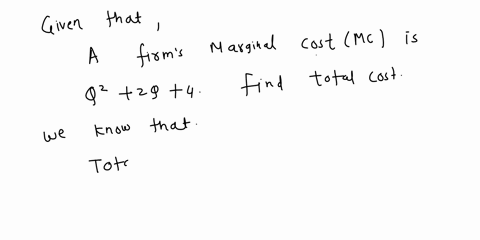 Given that,
A firm's Marginal cost (MC) is
Q² + 2Q + 4. Find total cost.
we know that.
Tot